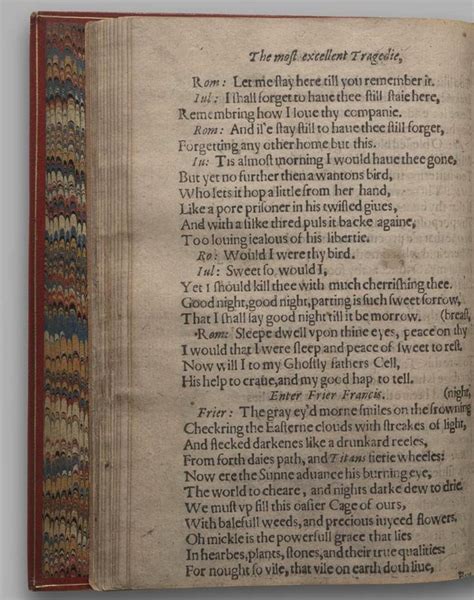 The most excellent Tragedie,
Rom: Let me stay here till you remember it.
Iul: I shall forget to haue thee still staie here,
Remembring how I loue thy companie.
Rom: And il'e stay still to haue thee still forget,
Forgetting any other home but this.
Iu: Tis almost morning I would haue thee gone,
But yet no further then a wantons bird,
Who lets it hop a little from her hand,
Like a pore prisoner in his twisted giues,
And with a silke thred puls it backe againe,
Too louing iealous of his libertie.
Ro: Would I were thy bird.
Iul: Sweet so would I,
Yet I should kill thee with much cherrishing thee.
Good night, good night, parting is such sweet sorrow,
That I shall say good night till it be morrow. (breast,
Rom: Sleepe dwell vpon thine eyes, peace on thy
I would that I were sleep and peace of sweet to rest.
Now will I to my Ghostly fathers Cell,
His help to craue, and my good hap to tell.
Enter Frier Francis. (night,
Frier: The gray ey'd morne smiles on the frowning
Checkring the Easterne clouds with streakes of light,
And flecked darkenes like a drunkard reeles,
From forth daies path, and Titans fierie wheeles:
Now ere the Sunne aduance his burning eye,
The world to cheare, and nights darke dew to drie
We must vp fill this oasier Cage of ours,
With balefull weeds, and precious iuyced flowers.
Oh mickle is the powerfull grace that lies
In hearbes, plants, stones, and their true qualities:
For nought so vile, that vile on earth doth liue,